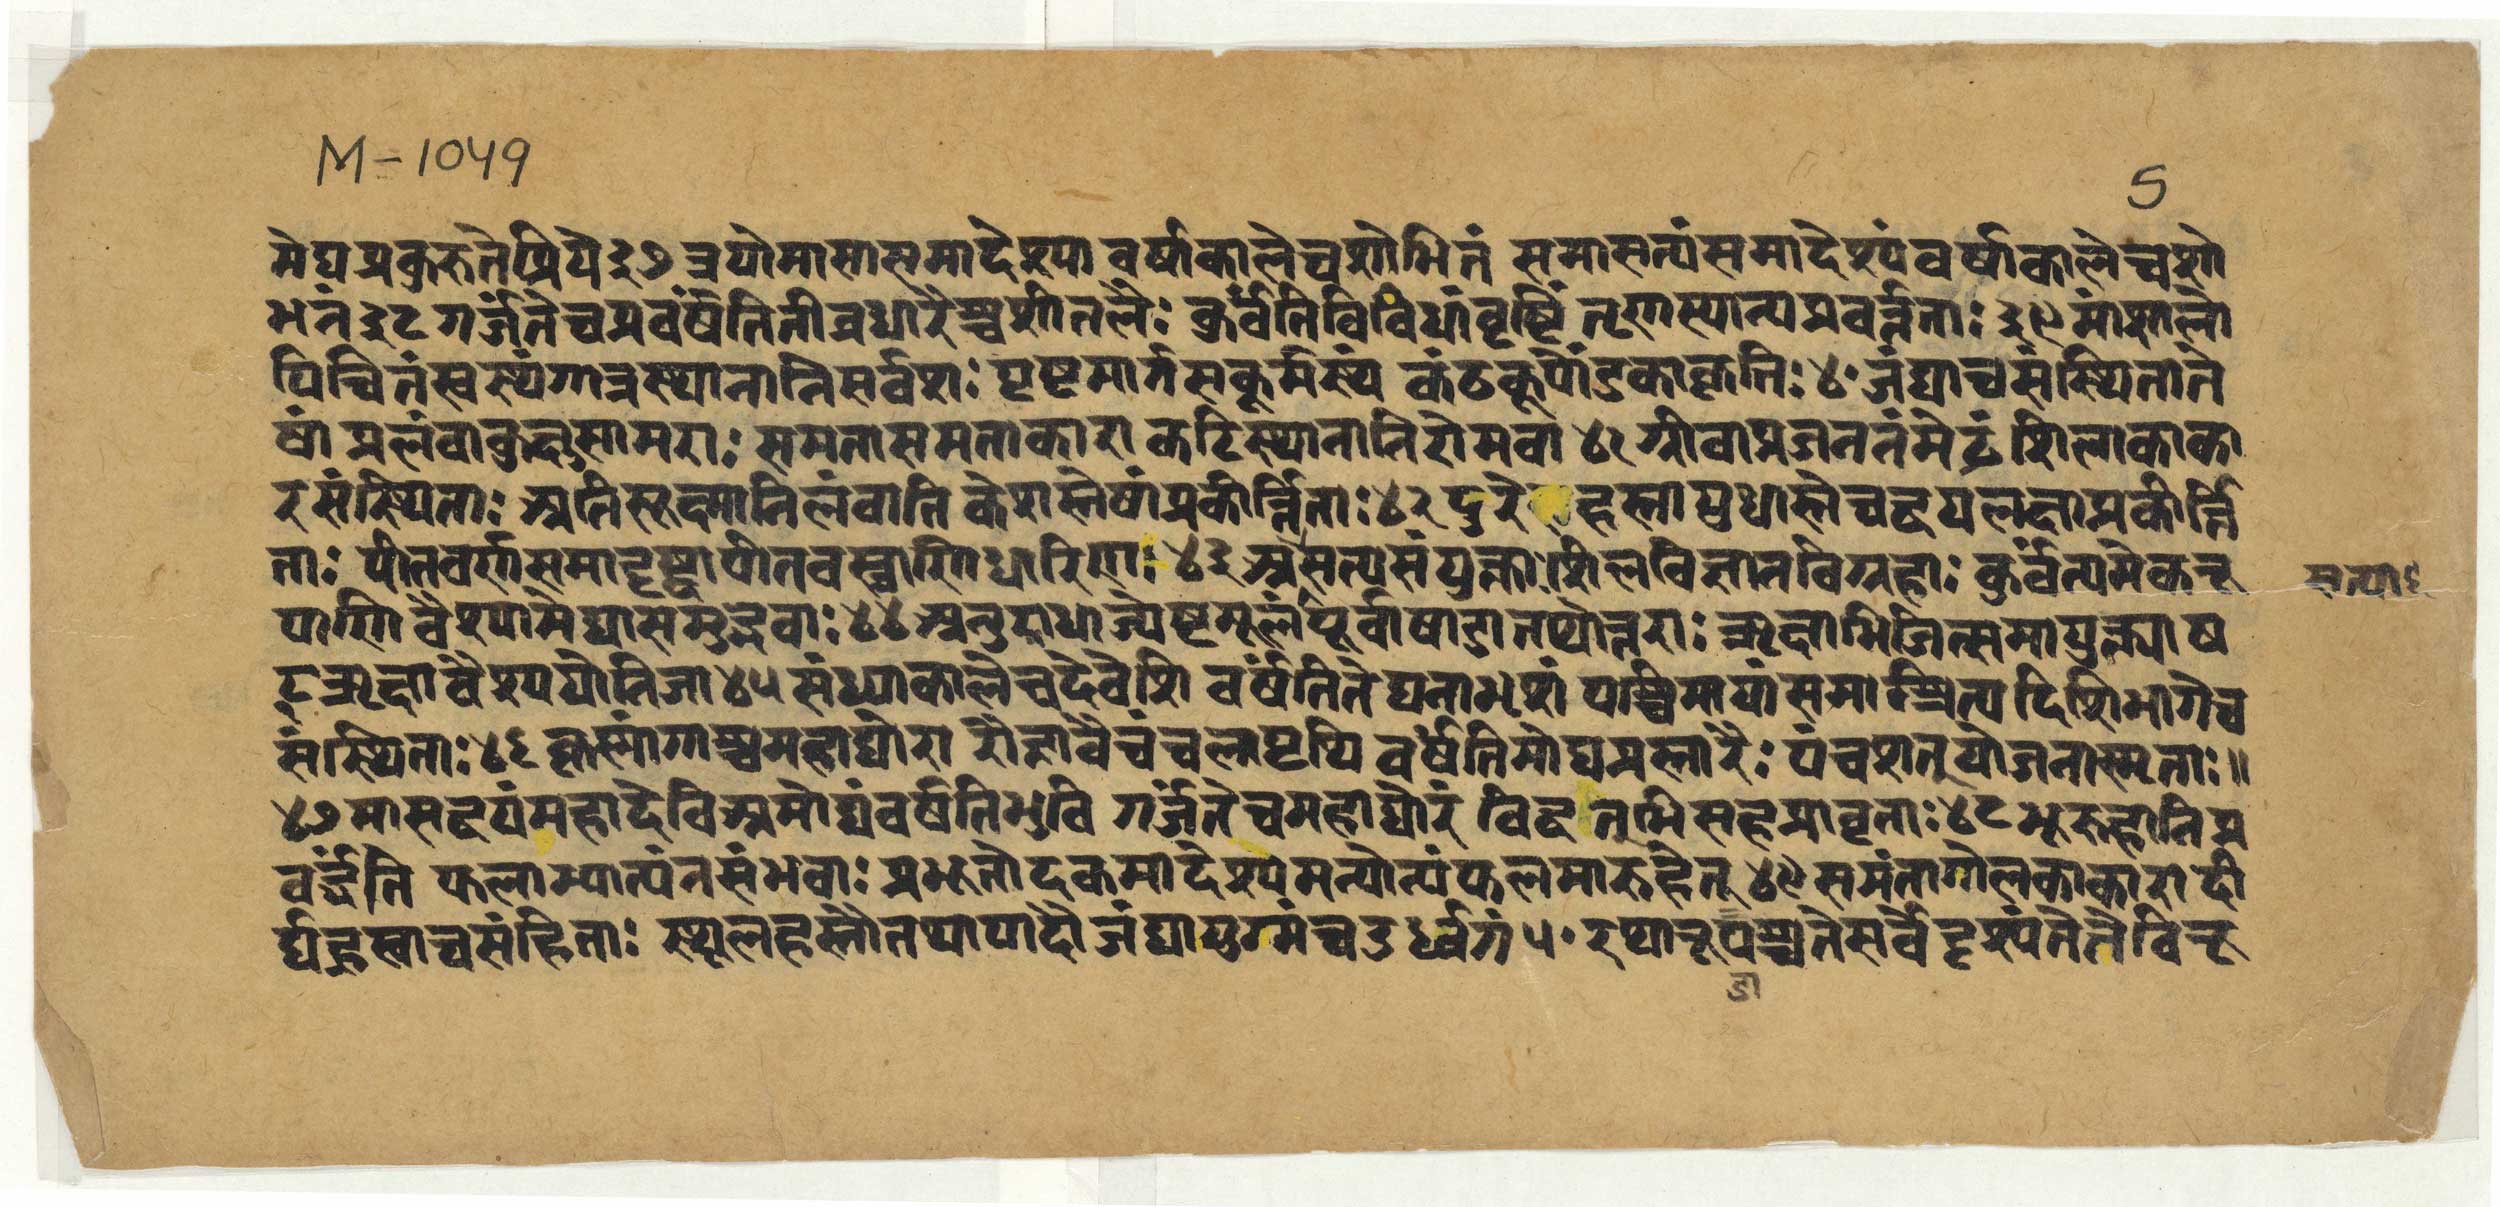 M-1049
5
मेघप्रकुरुतेप्रिये३७त्रयोमासासमादेश्या वर्षाकालेचशोभितं समासत्यंसमादेश्यंवर्षाकालेचशो
भनं३८गर्जंतेचप्रवर्षंतितीव्रधारैस्तुशीतलैः कुर्वंतिविविधांवृष्टिं तृणस्यान्यप्रवर्त्तताः३९मांशलो
पिचितंस्वस्थंगात्रस्थानानिसर्वशः पृष्टमार्गसकूर्मस्थं कंठकूपांडकाकृतिः४०जंघाचसंस्थितांते
षां प्रलंवाकुक्षुसामराः समतासमताकारा कटिस्थानानिरोमवा ४१ग्रीवाप्रजननंमेढ्रंशिलाकाका
रसंस्थिताः अतिसूक्ष्मानिलंवानि केशास्तेषांप्रकीर्त्तिताः४२दुरे हस्तापुधास्तेचद्वयलक्षाप्रकीर्त्ति
ताः पीतवर्णासमादृष्ट्वापीतवस्त्राणिधारिणाः ४३असत्यसंयुक्ताशिलविज्ञानविग्रहाः कुर्वंत्यमेकनू
सत्या६
पाणि वैश्यामेघासमुद्भवाः४४अनुराधाज्येष्टमूलंपूर्वाषाढातथोत्तराः ऋक्षाभिजित्समायुक्त्याष
ट्ऋक्षावैश्ययोनिजा४५संध्याकालेचदेवेशि वर्षंतितेघनाभृशं पश्चिमायांसमाश्रित्य दिशिभागेव
संस्थिताः४६कृस्नांगाश्चमहाघोरा रौजावैचंचलापृयि वर्षंतिमोघप्रस्तारैः पंचशत्योजनास्मृताः॥
४७मासद्वयंमहादेविअमोघंवर्षतिभुवि गर्जंतेचमहाघोरं विद्वत्भिसहप्रावृताः४८भूरुहानिप्र
वर्द्धंति फलाम्यात्यंतसंभवाः प्रभूतोदकमादेश्यमन्योन्यंफलमारुहेत् ४९समंतागोलकाकारादी
र्घह्रस्वाचसंहिताः स्थूलहस्तौतथापादौजंघायुगमंचउर्ध्वगं५०रुपानूपश्चतेसर्वेदृश्यंतेतेविनू
ज्ञा